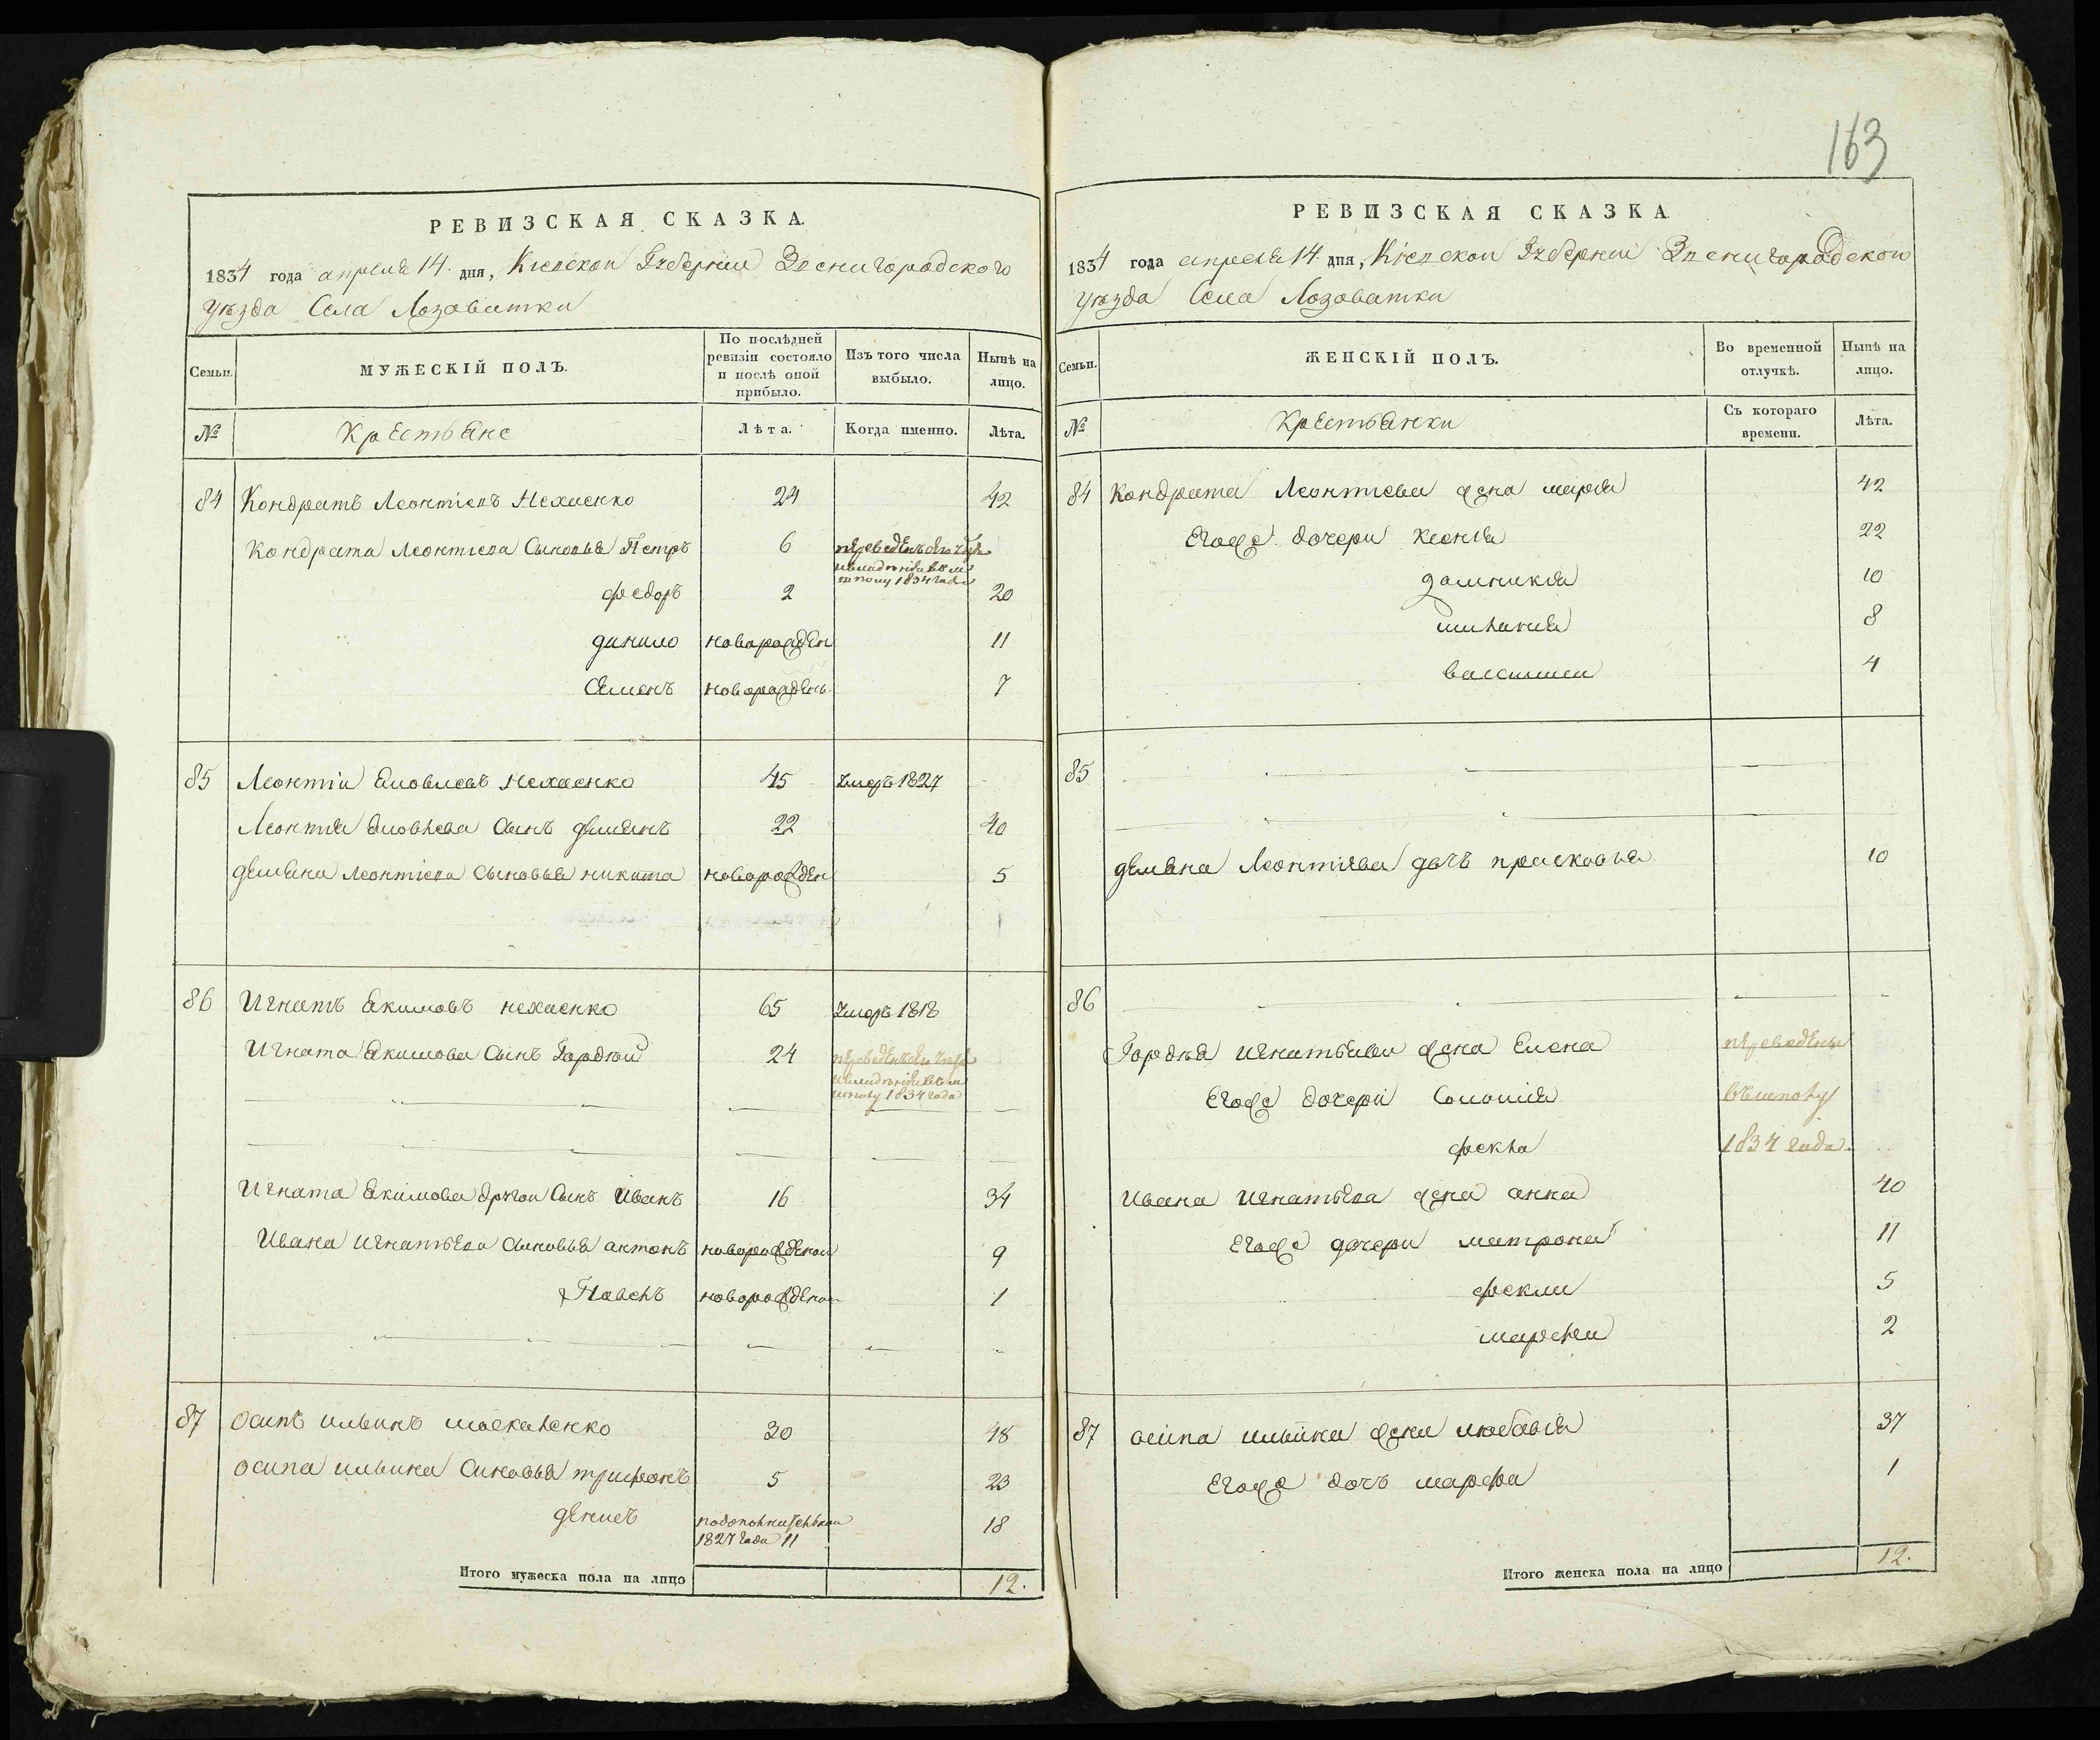 РЕВИЗСКАЯ СКАЗКА.
1834 года апреля 14. дня, Киевской Губернии Звенигородского
уезда Села Лозоватки
Семьи.
МУЖЕСКІЙ ПОЛЪ.
По послѣдней ревизіи состояло и послѣ оной прибыло.
Изъ того числа выбыло.
Нынѣ на лицо.
№ Крестьяне Лѣта. Когда именно. Лѣта.
84 Кондратъ Леонтиевъ Нехаенко 24 42
Кондрата Леонтиева Сыновья Петръ 6
1834 года
федоръ 2 20
данило новорожден 11
Семенъ новорожденъ 7
85 Леонтий Яковлевъ Нехаенко 45 Умеръ 1827
Леонтия Яковлева Сынъ демянъ 22 40
демяна Леонтиева Сыновья никита новорожден 5
86 Игнатъ Якимовъ нехаенко 65 Умеръ 1818
Игната Якимова Сынъ Гордѣй 24
1834 года
Игната Якимова другой Сынъ Иванъ 16 34
Ивана Игнатьева Сыновья антонъ новорожденой 9
Павелъ новорожденой 1
87 Осипъ ильинъ москаленко 30 48
Осипа ильина Сыновья трифонъ 5 23
денисъ 18
1827 года 11
Итого мужеска пола на лицо 12.
163
РЕВИЗСКАЯ СКАЗКА
1834 года апреля 14. дня, Киевской Губернии Звенигородского
уезда Села Лозоватки
Семьи.
ЖЕНСКІЙ ПОЛЪ.
Во временной отлучкѣ.
Нынѣ на лицо.
№ Крестьянки Съ котораго времени. Лѣта.
84 Кондрата Леонтиева жена мария 42
Егоже дочери Ксения 22
домникия 10
8
василиса 4
85
демяна Леонтиева дочъ прасковья 10
86
Гордѣя игнатьева жена Елена переведены
Егоже дочери Соломия
фекла 1834 года.
Ивана Игнатьева жена анна 40
Егоже дочери матрона 11
фекла 5
2
87 осипа ильина жена любовія 37
Егоже дочъ марфа 1
Итого женска пола на лицо 12.